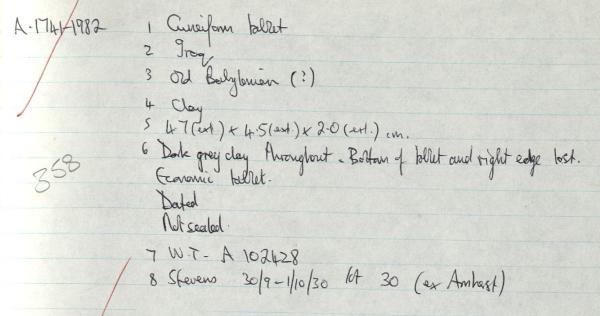 A.1741-1982 1 Cuneiform tablet
2 Iraq
3 Old Babylonian (?)
4 Clay
5 4.7(ext.) x 4.5(ext.) x 2.0(ext.) cm.
6 Dark grey clay throughout. Bottom of tablet and right edge lost.
Economic tablet.
Dated
Not sealed.
358
7 W.T- A 102428
8 Stevens 30/9-1/10/30 lot 30 (ex Amhast)